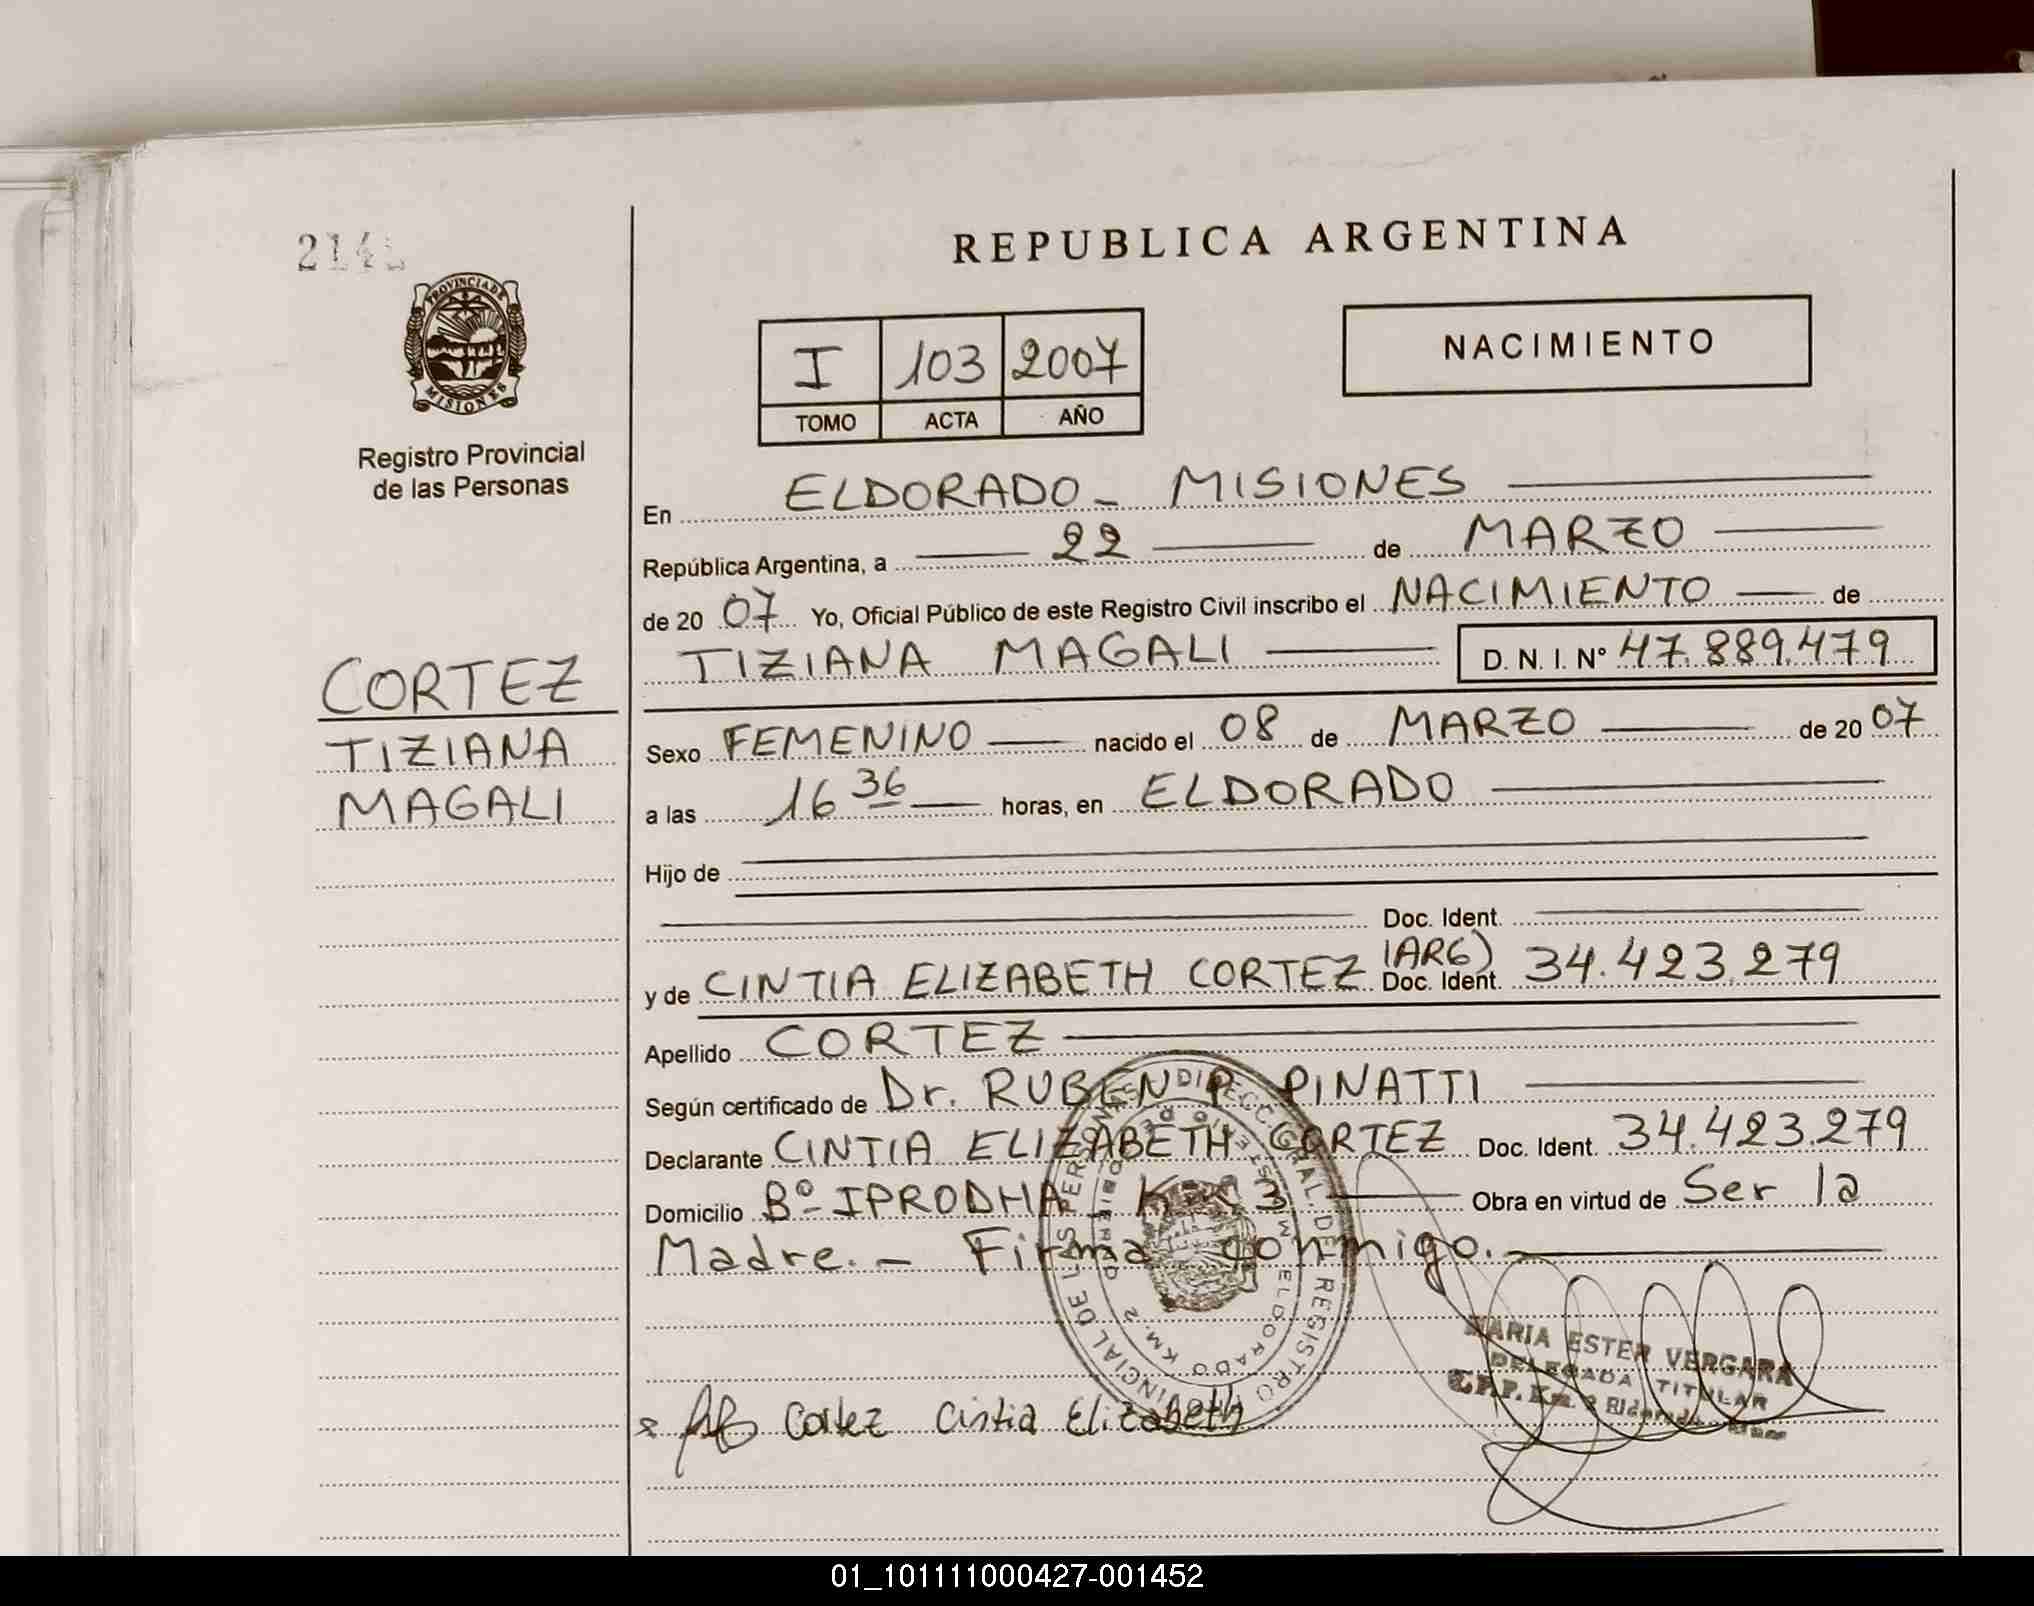 REPUBLICA ARGENTINA
PROVINCIA DE
MISIONES
Registro Provincial
de las Personas
I 103 2007
TOMO ACTA AÑO
NACIMIENTO
CORTEZ
TIZIANA
MAGALI
En ELDORADO - MISIONES
República Argentina, a 22 de MARZO
de 20 07 Yo, Oficial Público de este Registro Civil inscribo el NACIMIENTO de
TIZIANA MAGALI D. N. I. Nº 47.889.479
Sexo FEMENINO nacido el 08 de MARZO de 20 07
a las 16 36 horas, en ELDORADO
Hijo de
Doc. Ident.
y de CINTIA ELIZABETH CORTEZ (ARG) Doc. Ident. 34.423.279
Apellido CORTEZ
Según certificado de Dr. RUBEN P. PINATTI
Declarante CINTIA ELIZABETH CORTEZ Doc. Ident. 34.423.279
Domicilio Bº IPRODHA Km 3 Obra en virtud de Ser la
Madre. - Firma conmigo.
MARIA ESTER VERGARA
DELEGADA TITULAR
Cortez Cintia Elizabeth
01_101111000427-001452